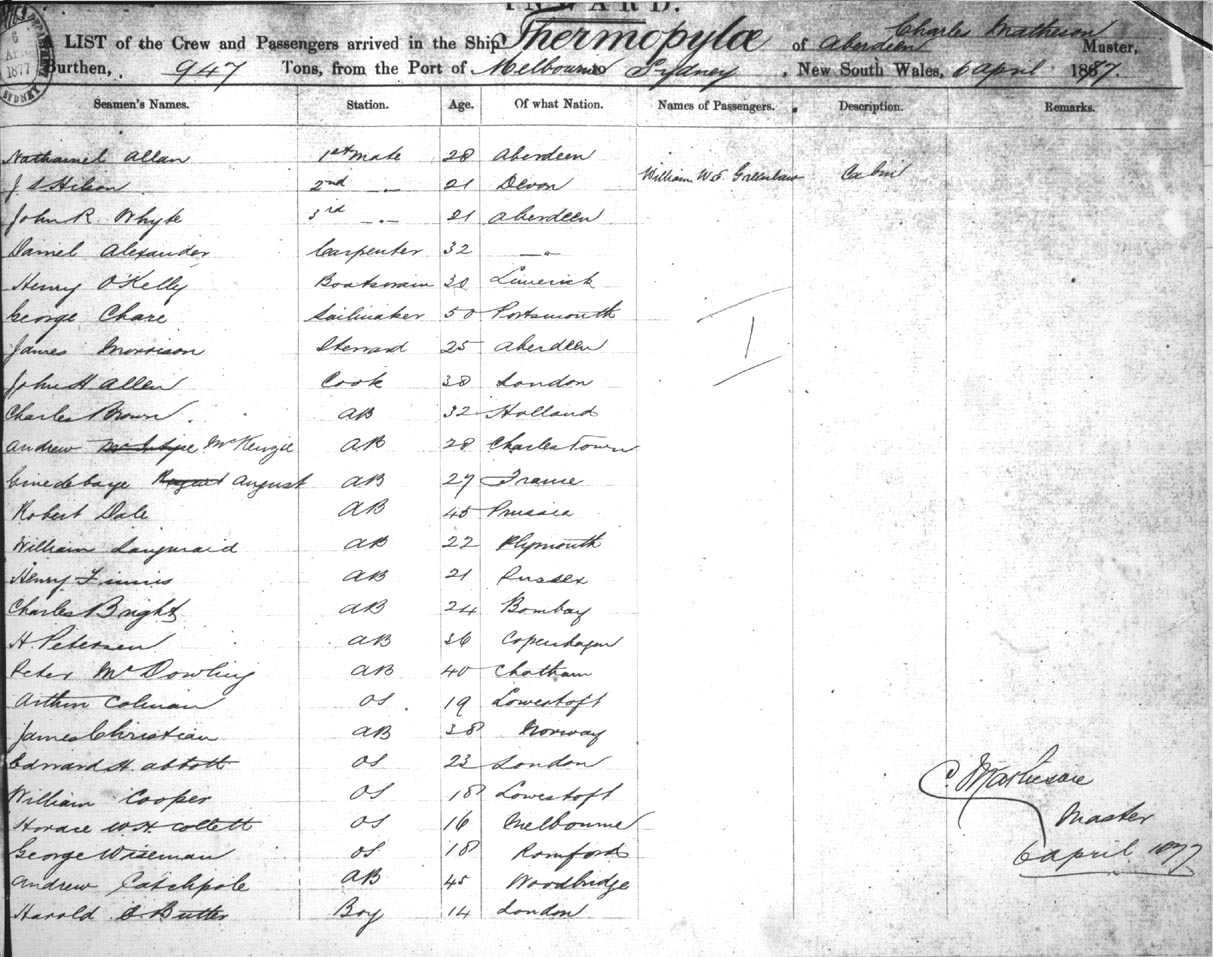 INWARD.
6 AP 1877 SYDNEY
LIST of the Crew and Passengers arrived in the Ship Thermopylæ of Aberdeen Charles Matheson Master,
Burthen, 947 Tons, from the Port of Melbourne to Sydney, New South Wales, 6 April 1877.
Seamen's Names. Station. Age. Of what Nation. Names of Passengers. Description. Remarks.
Nathaniel Allan 1st Mate 28 Aberdeen
J S Hilson 2nd " 21 Devon William W S Cabin
John R. Whyte 3rd " 21 Aberdeen
Daniel Alexander Carpenter 32 "
Henry O'Kelly Boatswain 30 Limerick
George Chare Sailmaker 50 Portsmouth
James Morrison Steward 25 Aberdeen
John H Allen Cook 38 London
Charles Brown AB 32 Holland
Andrew McKenzie AB 28 Charlestown
August AB 27 France
Robert Dale AB 45 Prussia
William Langmaid AB 22 Plymouth
Henry Finnis AB 21 Sussex
Charles Bright AB 24 Bombay
H. Petersen AB 36 Copenhagen
Peter McDowling AB 40 Chatham
Arthur Colman OS 19 Lowestoft
James Christian AB 38 Norway
Edward H. Abbott OS 23 London
William Cooper OS 18 Lowestoft
Horace W. H. Collett OS 16 Melbourne
George Wiseman OS 18 Romford
Andrew Catchpole AB 45 Woodbridge
Harold E Butler Boy 14 London
C. Matheson
Master
6 April 1877